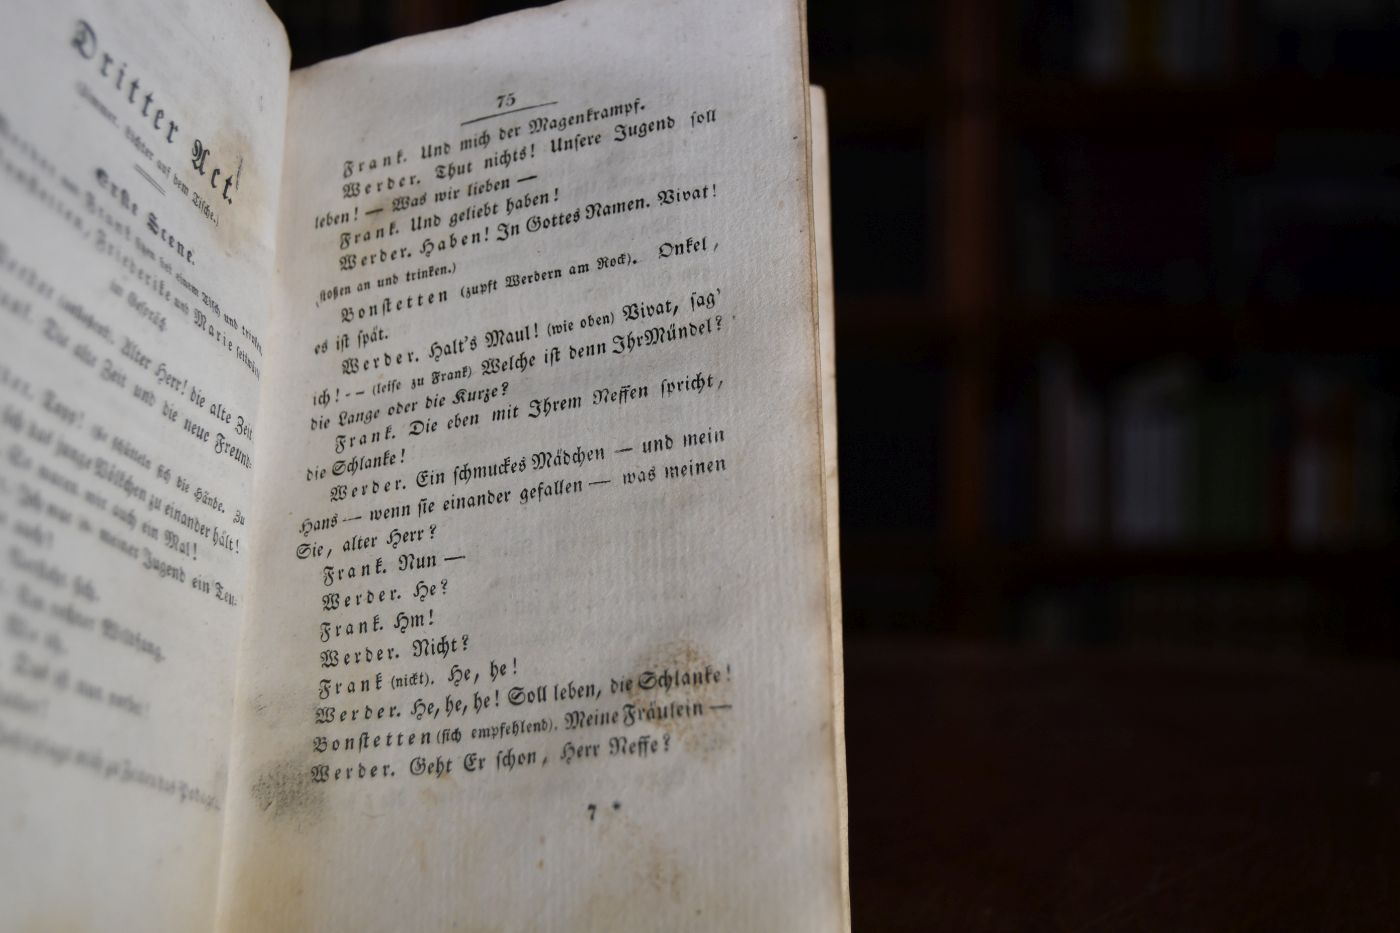 Dritter Act.
(Zimmer. Lichter auf dem Tische.)
Erſte Scene.
Werder und Frank ſitzen bei einem Tiſch und trinken,
Bonſtetten, Friederike und Marie ſeitwärts
im Geſpräch.
Alter Herr! die alte Zeit
Die alte Zeit und die neue Freund-
Topp! ſie ſchütteln ſich die Hände. Zu
ſich das junge Völkchen zu einander hält!
So waren wir auch ein Mal!
meiner Jugend ein Teu-
75
Frank. Und mich der Magenkrampf.
Werder. Thut nichts! Unſere Jugend ſoll
leben! — Was wir lieben —
Frank. Und geliebt haben!
Werder. Haben! In Gottes Namen. Vivat!
(ſtoßen an und trinken.)
Bonſtetten (zupft Werdern am Rock). Onkel,
es iſt ſpät.
Werder. Halt's Maul! (wie oben) Vivat, ſag'
ich! -- (leiſe zu Frank) Welche iſt denn Ihr Mündel?
die Lange oder die Kurze?
Frank. Die eben mit Ihrem Neffen ſpricht,
die Schlanke!
Werder. Ein ſchmuckes Mädchen — und mein
Hans — wenn ſie einander gefallen — was meinen
Sie, alter Herr?
Frank. Nun —
Werder. He?
Frank. Hm!
Werder. Nicht?
Frank (nickt). He, he!
Werder. He, he, he! Soll leben, die Schlanke!
Bonſtetten (ſich empfehlend). Meine Fräulein —
Werder. Geht Er ſchon, Herr Neffe?
7 *